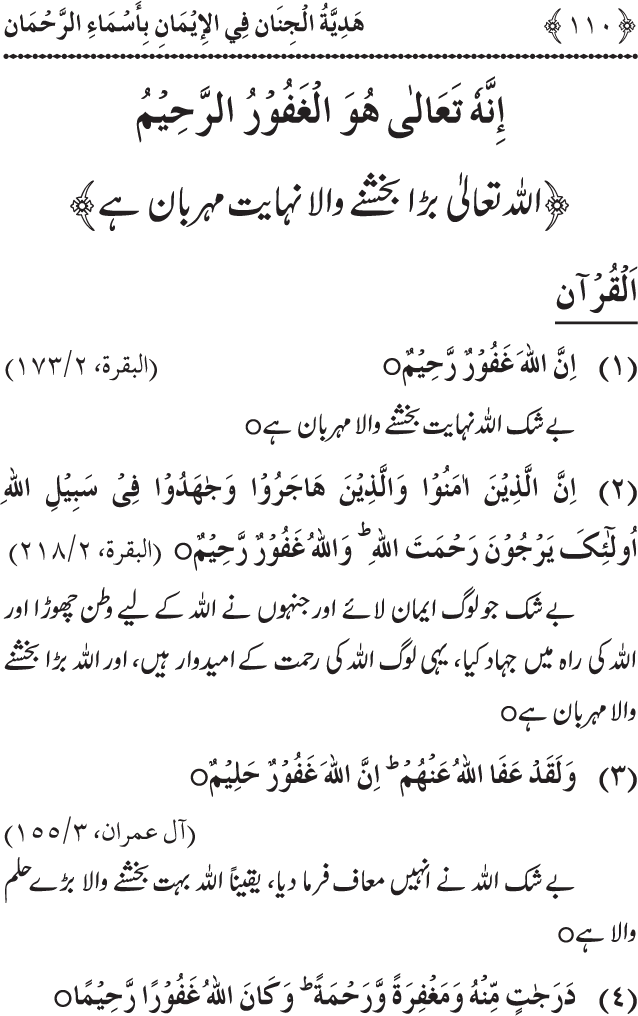 ﴿١١٠﴾ هَدِيَّةُ الْجِنَان فِي الإِيْمَانِ بِأَسْمَاءِ الرَّحْمَان
إِنَّهٗ تَعَالٰی هُوَ الْغَفُوْرُ الرَّحِيْمُ
﴿اللہ تعالیٰ بڑا بخشنے والا نہایت مہربان ہے﴾
اَلْقُرْآن
(١) اِنَّ اللهَ غَفُوْرٌ رَّحِيْمٌ○ (البقرة، ١٧٣/٢)
بے شک اللہ نہایت بخشنے والا مہربان ہے○
(٢) اِنَّ الَّذِيْنَ اٰمَنُوْا وَالَّذِيْنَ هَاجَرُوْا وَجٰهَدُوْا فِیْ سَبِيْلِ اللهِ
اُولٰٓئِکَ يَرْجُوْنَ رَحْمَتَ اللهِ ؕ وَاللهُ غَفُوْرٌ رَّحِيْمٌ○ (البقرة، ٢١٨/٢)
بے شک جو لوگ ایمان لائے اور جنہوں نے اللہ کے لیے وطن چھوڑا اور
اللہ کی راہ میں جہاد کیا، یہی لوگ اللہ کی رحمت کے امیدوار ہیں، اور اللہ بڑا بخشنے
والا مہربان ہے○
(٣) وَلَقَدْ عَفَا اللهُ عَنْهُمْ ؕ اِنَّ اللهَ غَفُوْرٌ حَلِيْمٌ○
(آل عمران، ١٥٥/٣)
بے شک اللہ نے انہیں معاف فرما دیا، یقیناً اللہ بہت بخشنے والا بڑے حلم
والا ہے○
(٤) دَرَجٰتٍ مِّنْهُ وَمَغْفِرَةً وَّرَحْمَةً ؕ وَکَانَ اللهُ غَفُوْرًا رَّحِيْمًا○